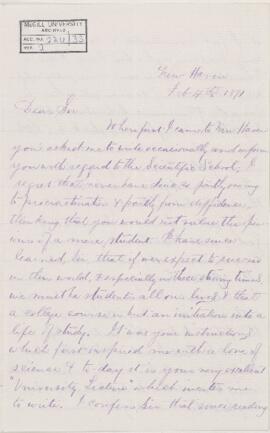 McGILL UNIVERSITY
ARCHIVES
ACC. NO. 33
REF. 2
New Haven
Feb 4th 1871
Dear Sir
When first I came to New Haven
you asked me to write occasionally and inform
you with regard to the Scientific School. I
regret that I never have done so partly owing
to procrastination & partly from diffidence
thinking that you would not value the
of a mere student. I have since
learned, Sir that if we expect to succeed
in this world, & especially in these stirring times,
we must be students all our lives & that
a college course is but an initiation into a
life of study. It was your instructions
which first inspired me with a love of
science & to-day it is your very excellent
"University Lecture" which incites me
to write. I confess Sir that since reading